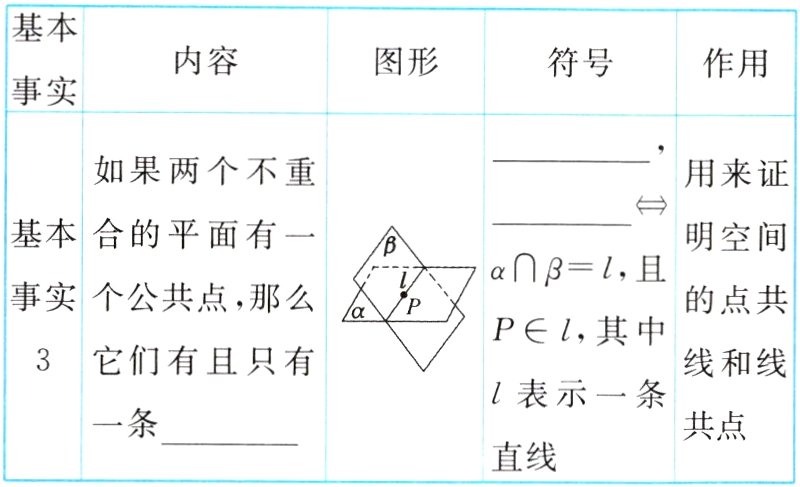 基本事实
内容
图形
符号
作用
基本事实3
如果两个不重
合的平面有一
个公共点,那么
它们有且只有
一条________
β
l
P
α
________,
________⇔
α∩β=l,且
P∈l,其中
l 表示一条
直线
用来证
明空间
的点共
线和线
共点